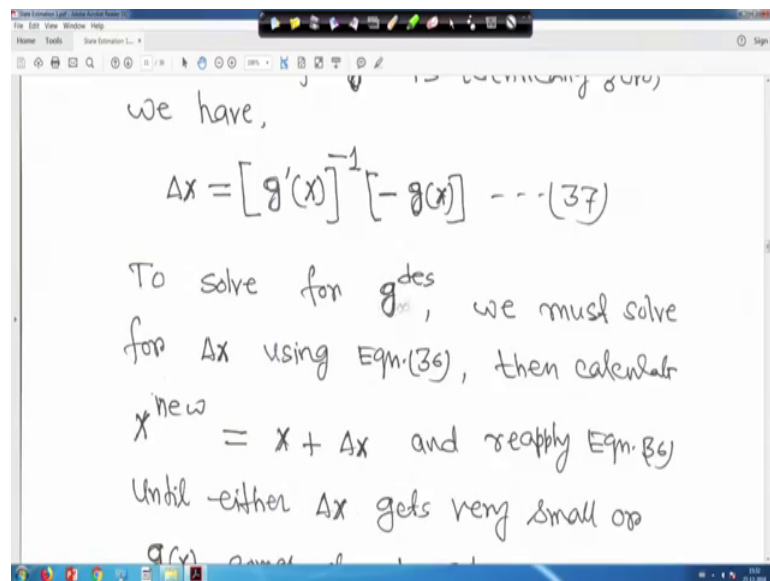 State Estimation 1.pdf - Adobe Acrobat Reader DC
File Edit View Window Help
Home Tools State Estimation 1... × Sign
we have,
Δx = [g'(x)]⁻¹ [-g(x)] ---(37)
To solve for g^des, we must solve
for Δx using Eqn.(36), then calculate
x^new = x + Δx and reapply Eqn.(36)
Until either Δx gets very small or
g(x)